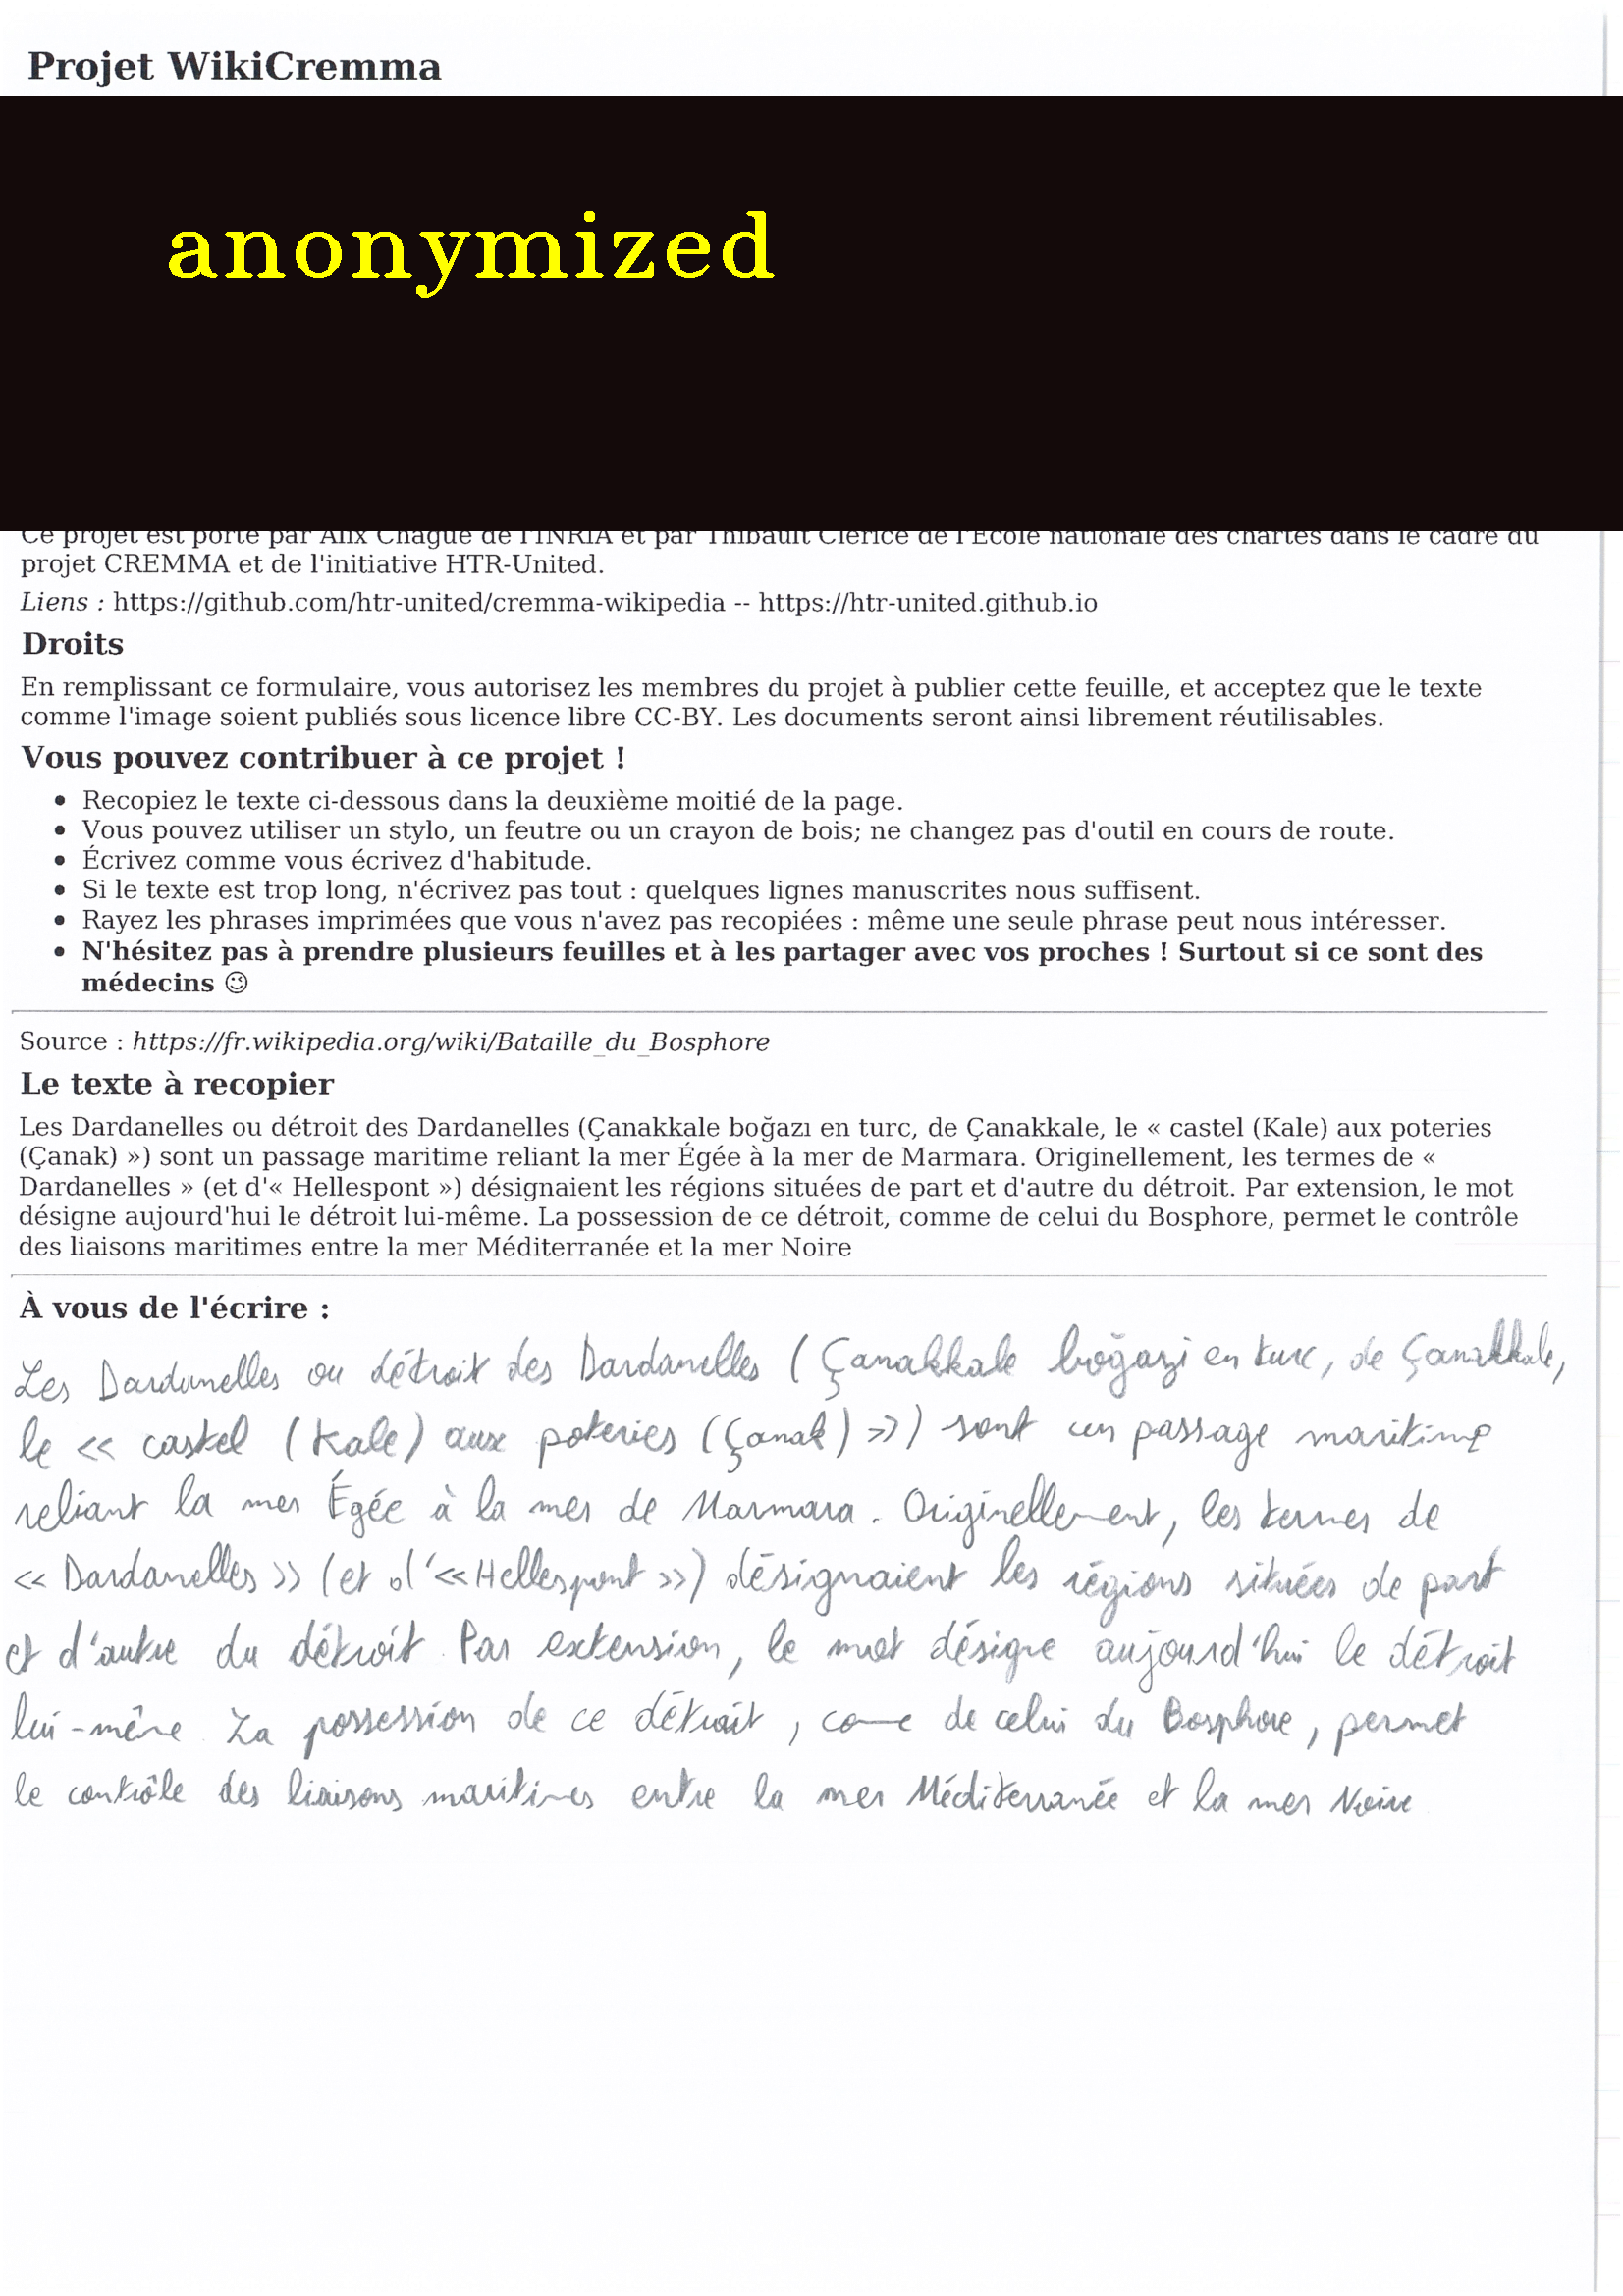 Projet WikiCremma
anonymized
Ce projet est porté par Alix Chagué de l'INRIA et par Thibault Clérice de l'École nationale des chartes dans le cadre du
projet CREMMA et de l'initiative HTR-United.
Liens : https://github.com/htr-united/cremma-wikipedia -- https://htr-united.github.io
Droits
En remplissant ce formulaire, vous autorisez les membres du projet à publier cette feuille, et acceptez que le texte
comme l'image soient publiés sous licence libre CC-BY. Les documents seront ainsi librement réutilisables.
Vous pouvez contribuer à ce projet !
• Recopiez le texte ci-dessous dans la deuxième moitié de la page.
• Vous pouvez utiliser un stylo, un feutre ou un crayon de bois; ne changez pas d'outil en cours de route.
• Écrivez comme vous écrivez d'habitude.
• Si le texte est trop long, n'écrivez pas tout : quelques lignes manuscrites nous suffisent.
• Rayez les phrases imprimées que vous n'avez pas recopiées : même une seule phrase peut nous intéresser.
• N'hésitez pas à prendre plusieurs feuilles et à les partager avec vos proches ! Surtout si ce sont des
médecins 😉
Source : https://fr.wikipedia.org/wiki/Bataille_du_Bosphore
Le texte à recopier
Les Dardanelles ou détroit des Dardanelles (Çanakkale boğazı en turc, de Çanakkale, le « castel (Kale) aux poteries
(Çanak) ») sont un passage maritime reliant la mer Égée à la mer de Marmara. Originellement, les termes de «
Dardanelles » (et d'« Hellespont ») désignaient les régions situées de part et d'autre du détroit. Par extension, le mot
désigne aujourd'hui le détroit lui-même. La possession de ce détroit, comme de celui du Bosphore, permet le contrôle
des liaisons maritimes entre la mer Méditerranée et la mer Noire
À vous de l'écrire :
Les Dardanelles ou détroit des Dardanelles (Çanakkale boğazi en turc, de Çanakkale,
le << castel (Kale) aux poteries (Çanak) >>) sont un passage maritime
reliant la mer Égée à la mer de Marmara. Originellement, les termes de
<< Dardanelles >> (et d'<< Hellespont >>) désignaient les régions situées de part
et d'autre du détroit. Par extension, le mot désigne aujourd'hui le détroit
lui-même. La possession de ce détroit, comme de celui du Bosphore, permet
le contrôle des liaisons maritimes entre la mer Méditerranée et la mer Noire